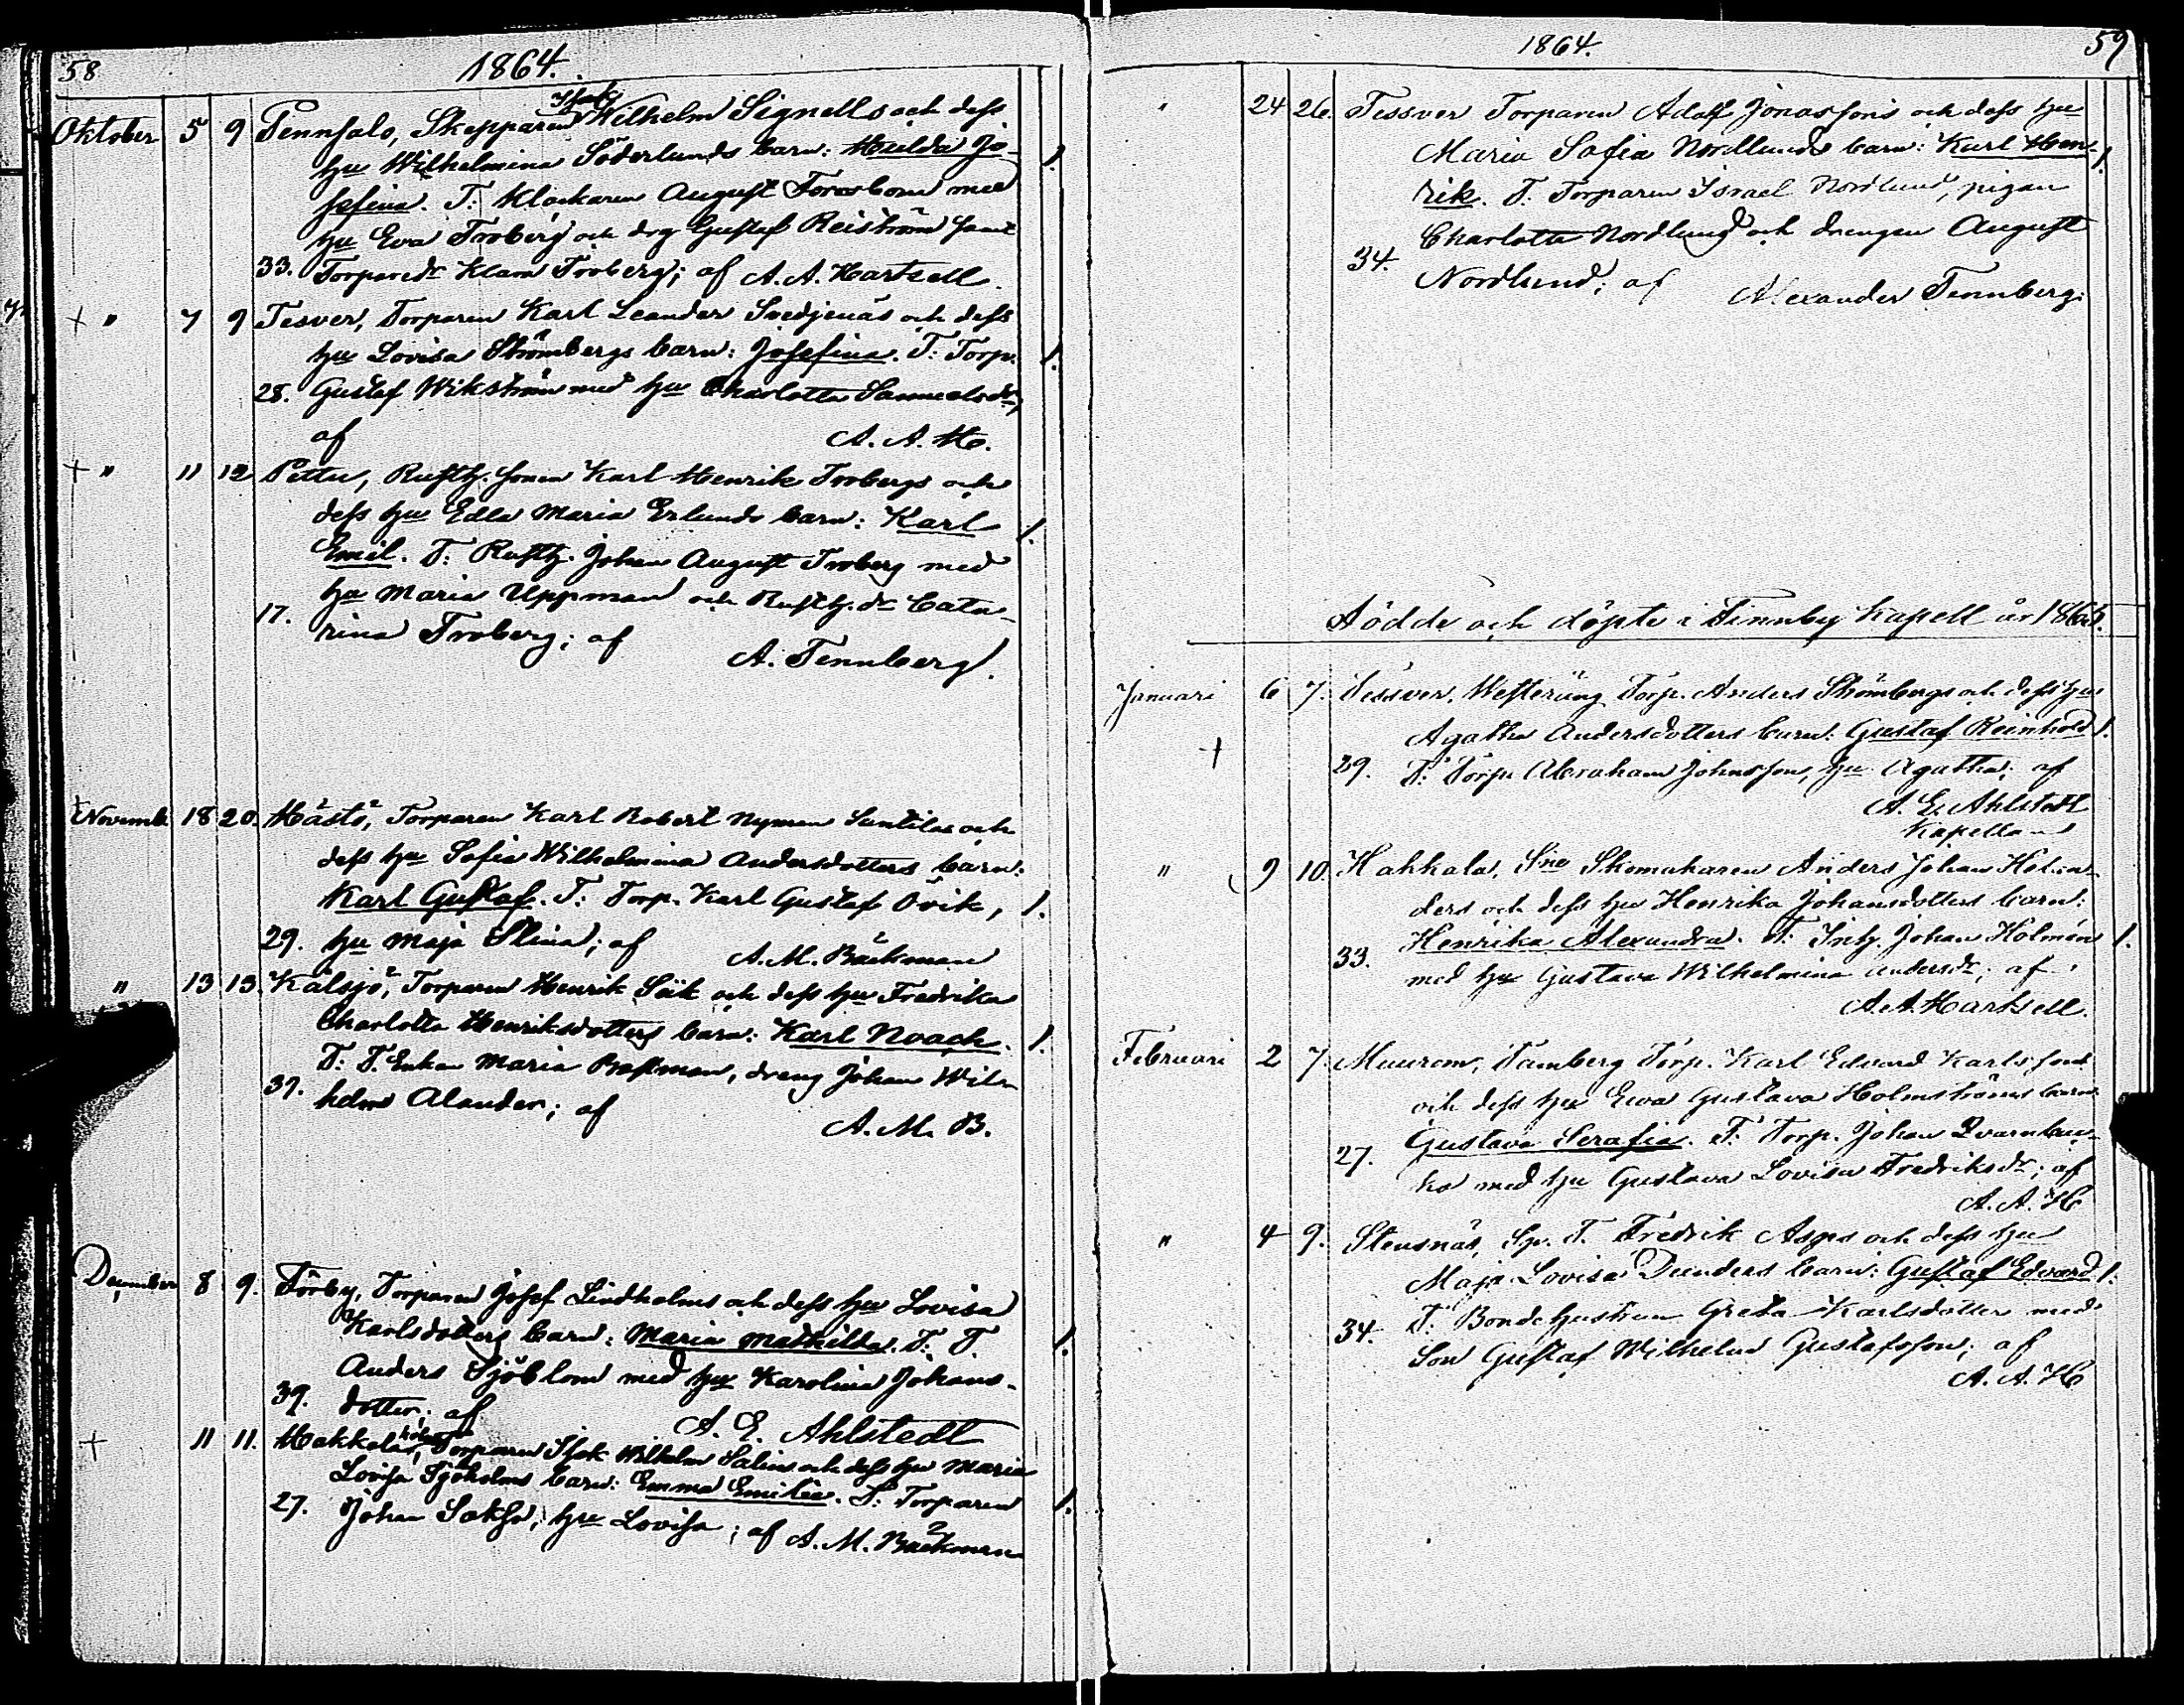 58
1864.
Oktober 5 9 Pennsalo, Skepparen Isak Wilhelm Signells och dess
hu Wilhelmina Söderlunds barn: Hulda Jo-
sefina. T: Klockaren August Forsbom med
hu Eva Froberg och drg Gustaf Reiström samt
33. Torparedr Klara Froberg; af A. A. Hartzell.
+ " 7 9 Tesver, Torparen Karl Leander Svedjenäs och dess
hu Lovisa Strömbergs barn: Josefina. T: Torp. 1.
28. Gustaf Wikström med hu Charlotta Samuelsdr,
af A. A. H.
+ " 11 12 Pettu, Rusth. sonen Karl Henrik Frobergs och
dess hu Edla Maria Erlunds barn: Karl 1.
Emil. T: Rusth. Johan August Froberg med
hu Maria Uppman och Rusth. dr Cata-
17. rina Froberg; af
A. Tennberg.
Novemb. 18 20. Hästö, Torparen Karl Robert Nyman Santilas och
dess hu Sofia Wilhelmina Andersdotters barn:
Karl Gustaf. T: Torp. Karl Gustaf Övik, 1.
29. hu Maja Stina; af A. M. Bäckman
" 13 13. Kålsjö, Torparen Henrik Sük och dess hu Fredrika
Charlotta Henriksdotters barn: Karl Noach. 1.
T: T. Enkan Maria Bastman, dreng Johan Wil-
37. helm Alander; af
A. M. B.
December 8 9. Förby, Torparen Josef Lindholms och dess hu Lovisa
Karlsdotters barn: Maria Mathilda. T: T. 1.
Anders Sjöblom med hu Karolina Johans-
39. dotter; af
A. E. Ahlstedt
+ 11 11. Hakkala, Torparen Isak Wilhelm Salins och dess hu Maria
Lovisa Sjöholms barn: Emma Emilie. T: Torparen 1.
27. Johan Saksa, hu Lovisa; af A. M. Bäckman
1864.
59
" 24 26. Tessver Torparen Adolf Jonassons och dess hu
Maria Sofia Nordlunds barn: Karl Hen- 1.
rik. T. Torparen Israel Nordlund, pigan
Charlotta Nordlund och drengen August
34. Nordlund; af
Alexander Tennberg.
Födde och döpte i Finnby Kapell år 1865.
Januari 6 7. Tessver, Westeräng Torp. Anders Strömbergs och dess hu
Agatha Andersdotters barn: Gustaf Reinhold 1.
+ 29. T: Torp. Abraham Johnsson, hu Agatha; af
A. E. Ahlstedt
Kapellan
" 9 10. Hakkala, Sne Skomakaren Anders Johan Helan-
ders och dess hu Henrika Johansdotters barn:
33. Henrika Alexandra. T: Inh. Johan Holmén 1.
med hu Gustava Wilhelmina Andersdr; af
A. A. Hartzell.
Februari 2 7. Muurom, Tamberg Torp. Karl Edvard Karlssons
och dess hu Ewa Gustava Holmströms barn:
27. Gustava Serafia. T: Torp. Johan Qvarnbac-
ka med hu Gustava Lovisa Fredriksdr; af
A. A. H
" 4 9. Stensnäs, Sp. T. Fredrik Asps och dess hu
Maja Lovisa Dunders barn: Gustaf Edvard 1.
34. T: Bondehustrun Greta Karlsdotter med
Son Gustaf Wilhelm Gustafsson; af
A. A. H